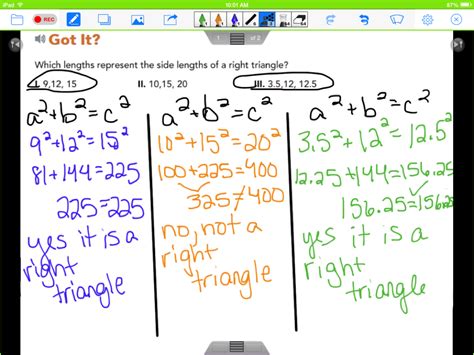 iPad
10:01 AM
87%
REC
1
1 of 2
Got It?
Which lengths represent the side lengths of a right triangle?
I. 9,12, 15
II. 10,15, 20
III. 3.5,12, 12.5
a²+b²=c²
9²+12²=15²
81+144=225
225=225
yes it is a
right
triangle
a²+b²=c²
10²+15²=20²
100+225=400
325≠400
no, not a
right
triangle
a²+b²=c²
3.5²+12²=12.5²
12.25+144=156.25
156.25=156.25
yes it is a
right
triangle